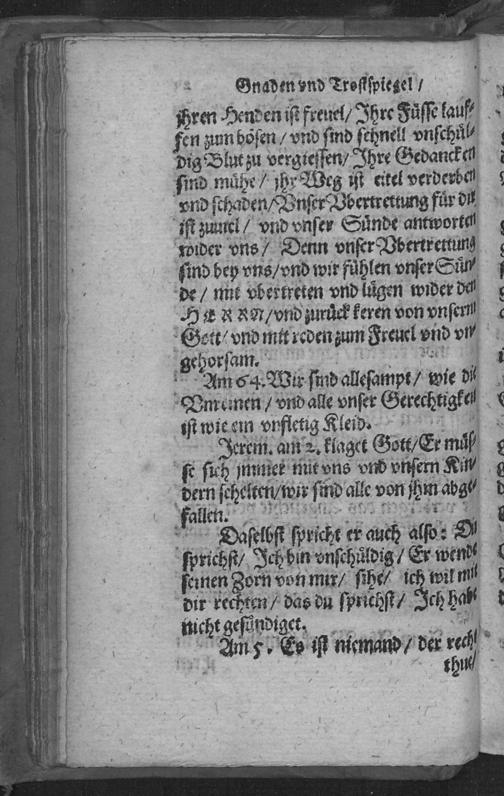 Gnaden vnd Trostspiegel /
jhren Henden ist freuel / Jhre Füsse lauf-
fen zum bösen / vnd sind schnell vnschül-
dig Blut zu vergiessen / Jhre Gedancken
sind mühe / jhr Weg ist eitel verderben
vnd schaden / Vnser Vbertrettung für dir
ist zuuiel / vnd vnser Sünde antworten
wider vns / Denn vnser Vbertrettung
sind bey vns / vnd wir fühlen vnser Sün-
de / mit vbertreten vnd lügen wider den
HERRN / vnd zurück keren von vnserm
Gott / vnd mit reden zum Freuel vnd vn-
gehorsam.
Am 64. Wir sind allesampt / wie die
Vnreinen / vnd alle vnser Gerechtigkeit
ist wie ein vnfletig Kleid.
Jerem. am 2. klaget Gott / Er müs-
se sich jmmer mit vns vnd vnsern Kin-
dern schelten / wir sind alle von jhm abge-
fallen.
Daselbst spricht er auch also: Du
sprichst / Jch bin vnschüldig / Er wende
seinen Zorn von mir / sihe / ich wil mit
dir rechten / das du sprichst / Jch habe
nicht gesündiget.
Am 5. Es ist niemand / der recht
thue /